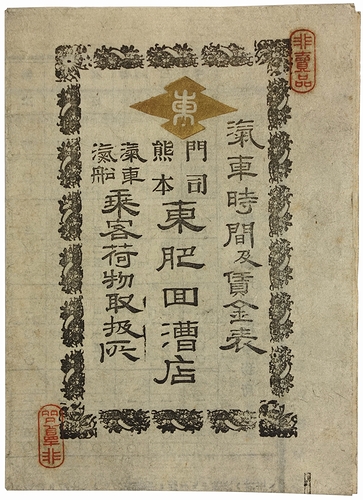 非賣品
東
滊車時間及賃金表
門司
熊本
東肥回漕店
滊車
滊船
乘客荷物取扱所
非賣品